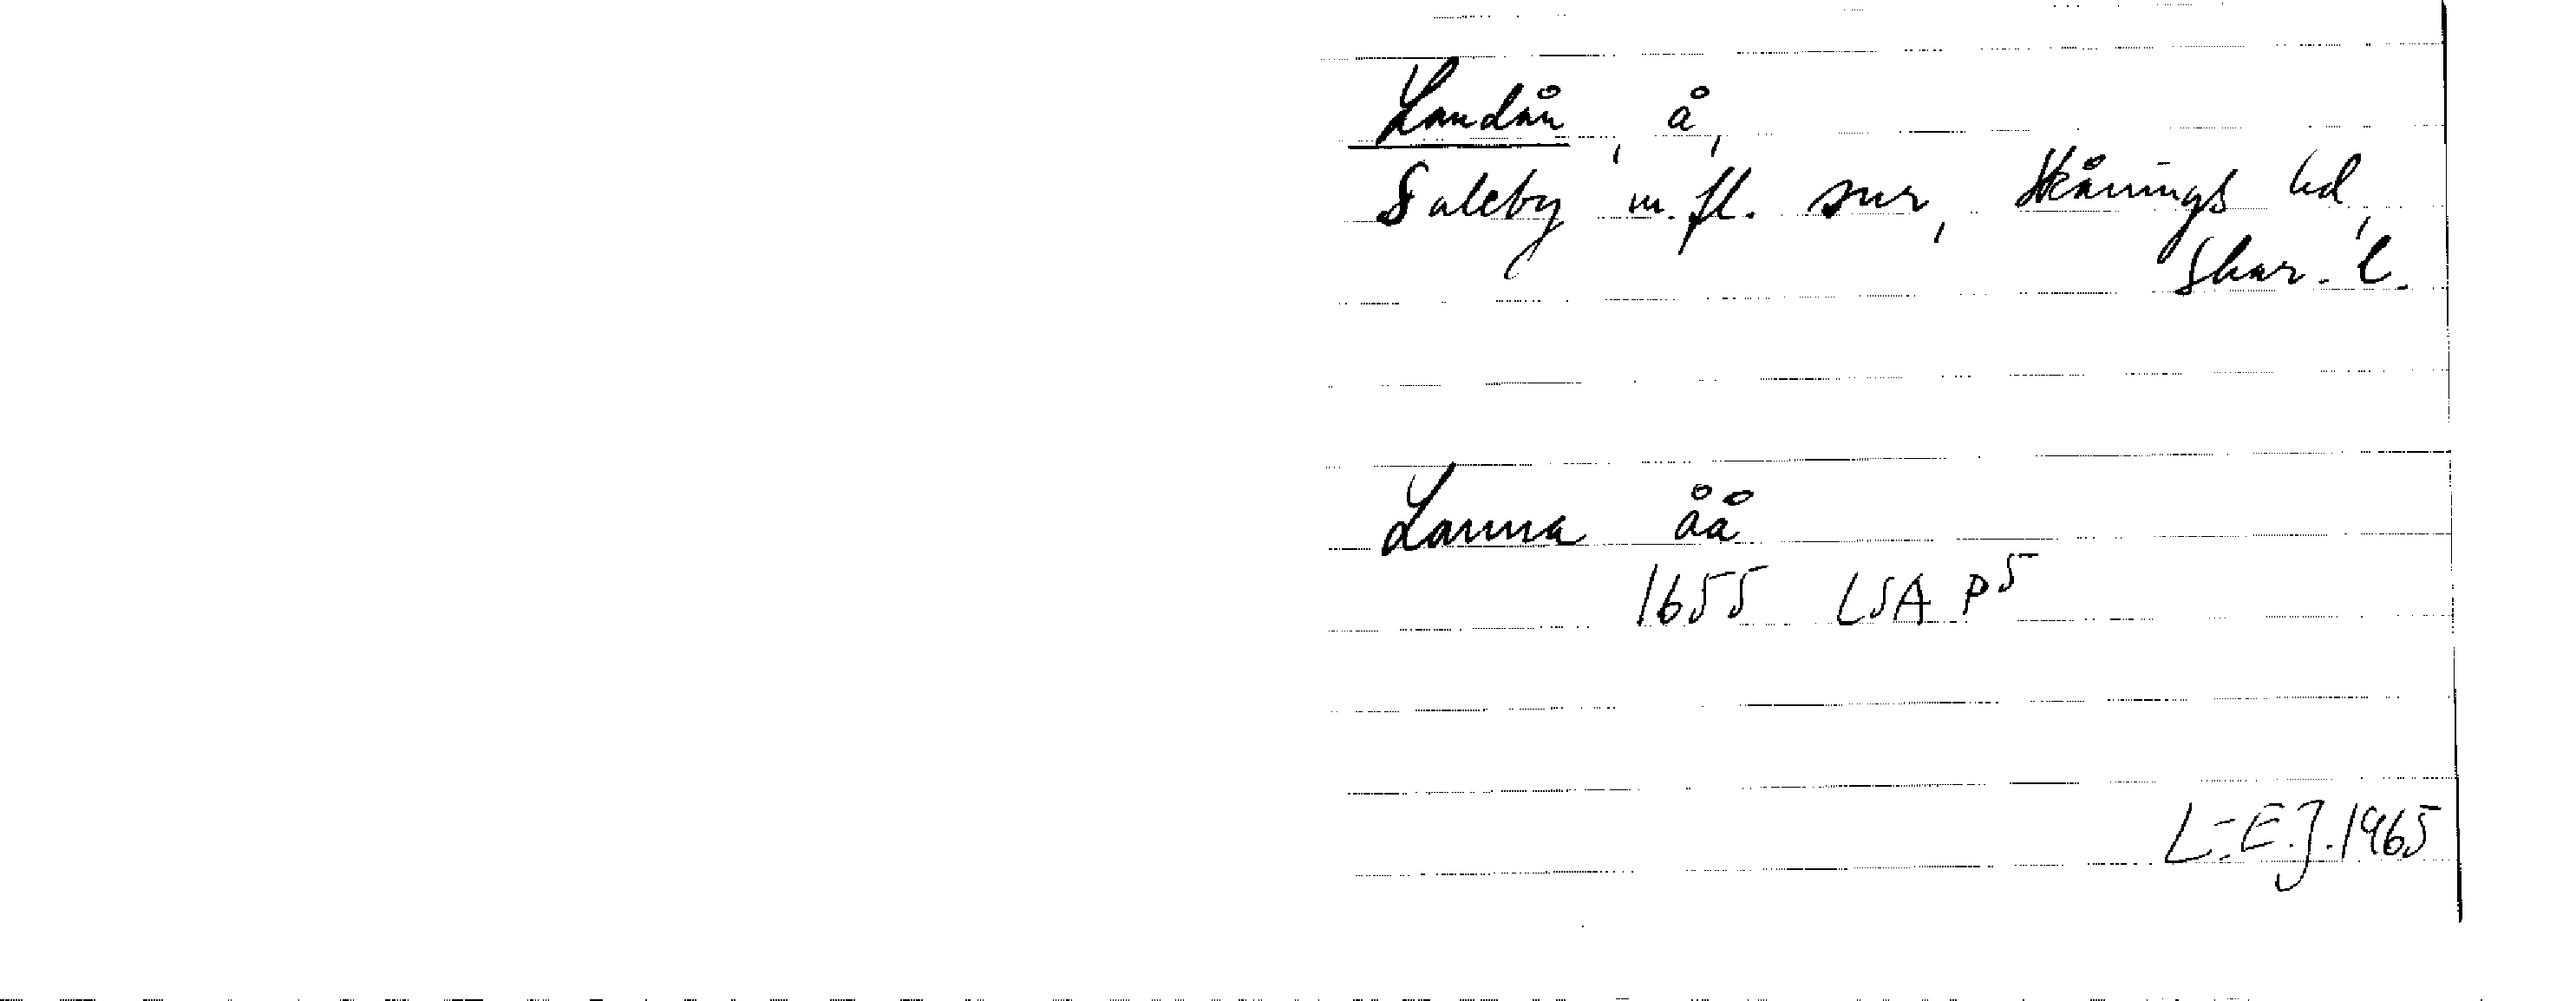 Landån, å,
Saleby m.fl. snr, Kånings hd,
Skar. l.
Lanna åå
1655 LSA P5
L-E.J. 1965